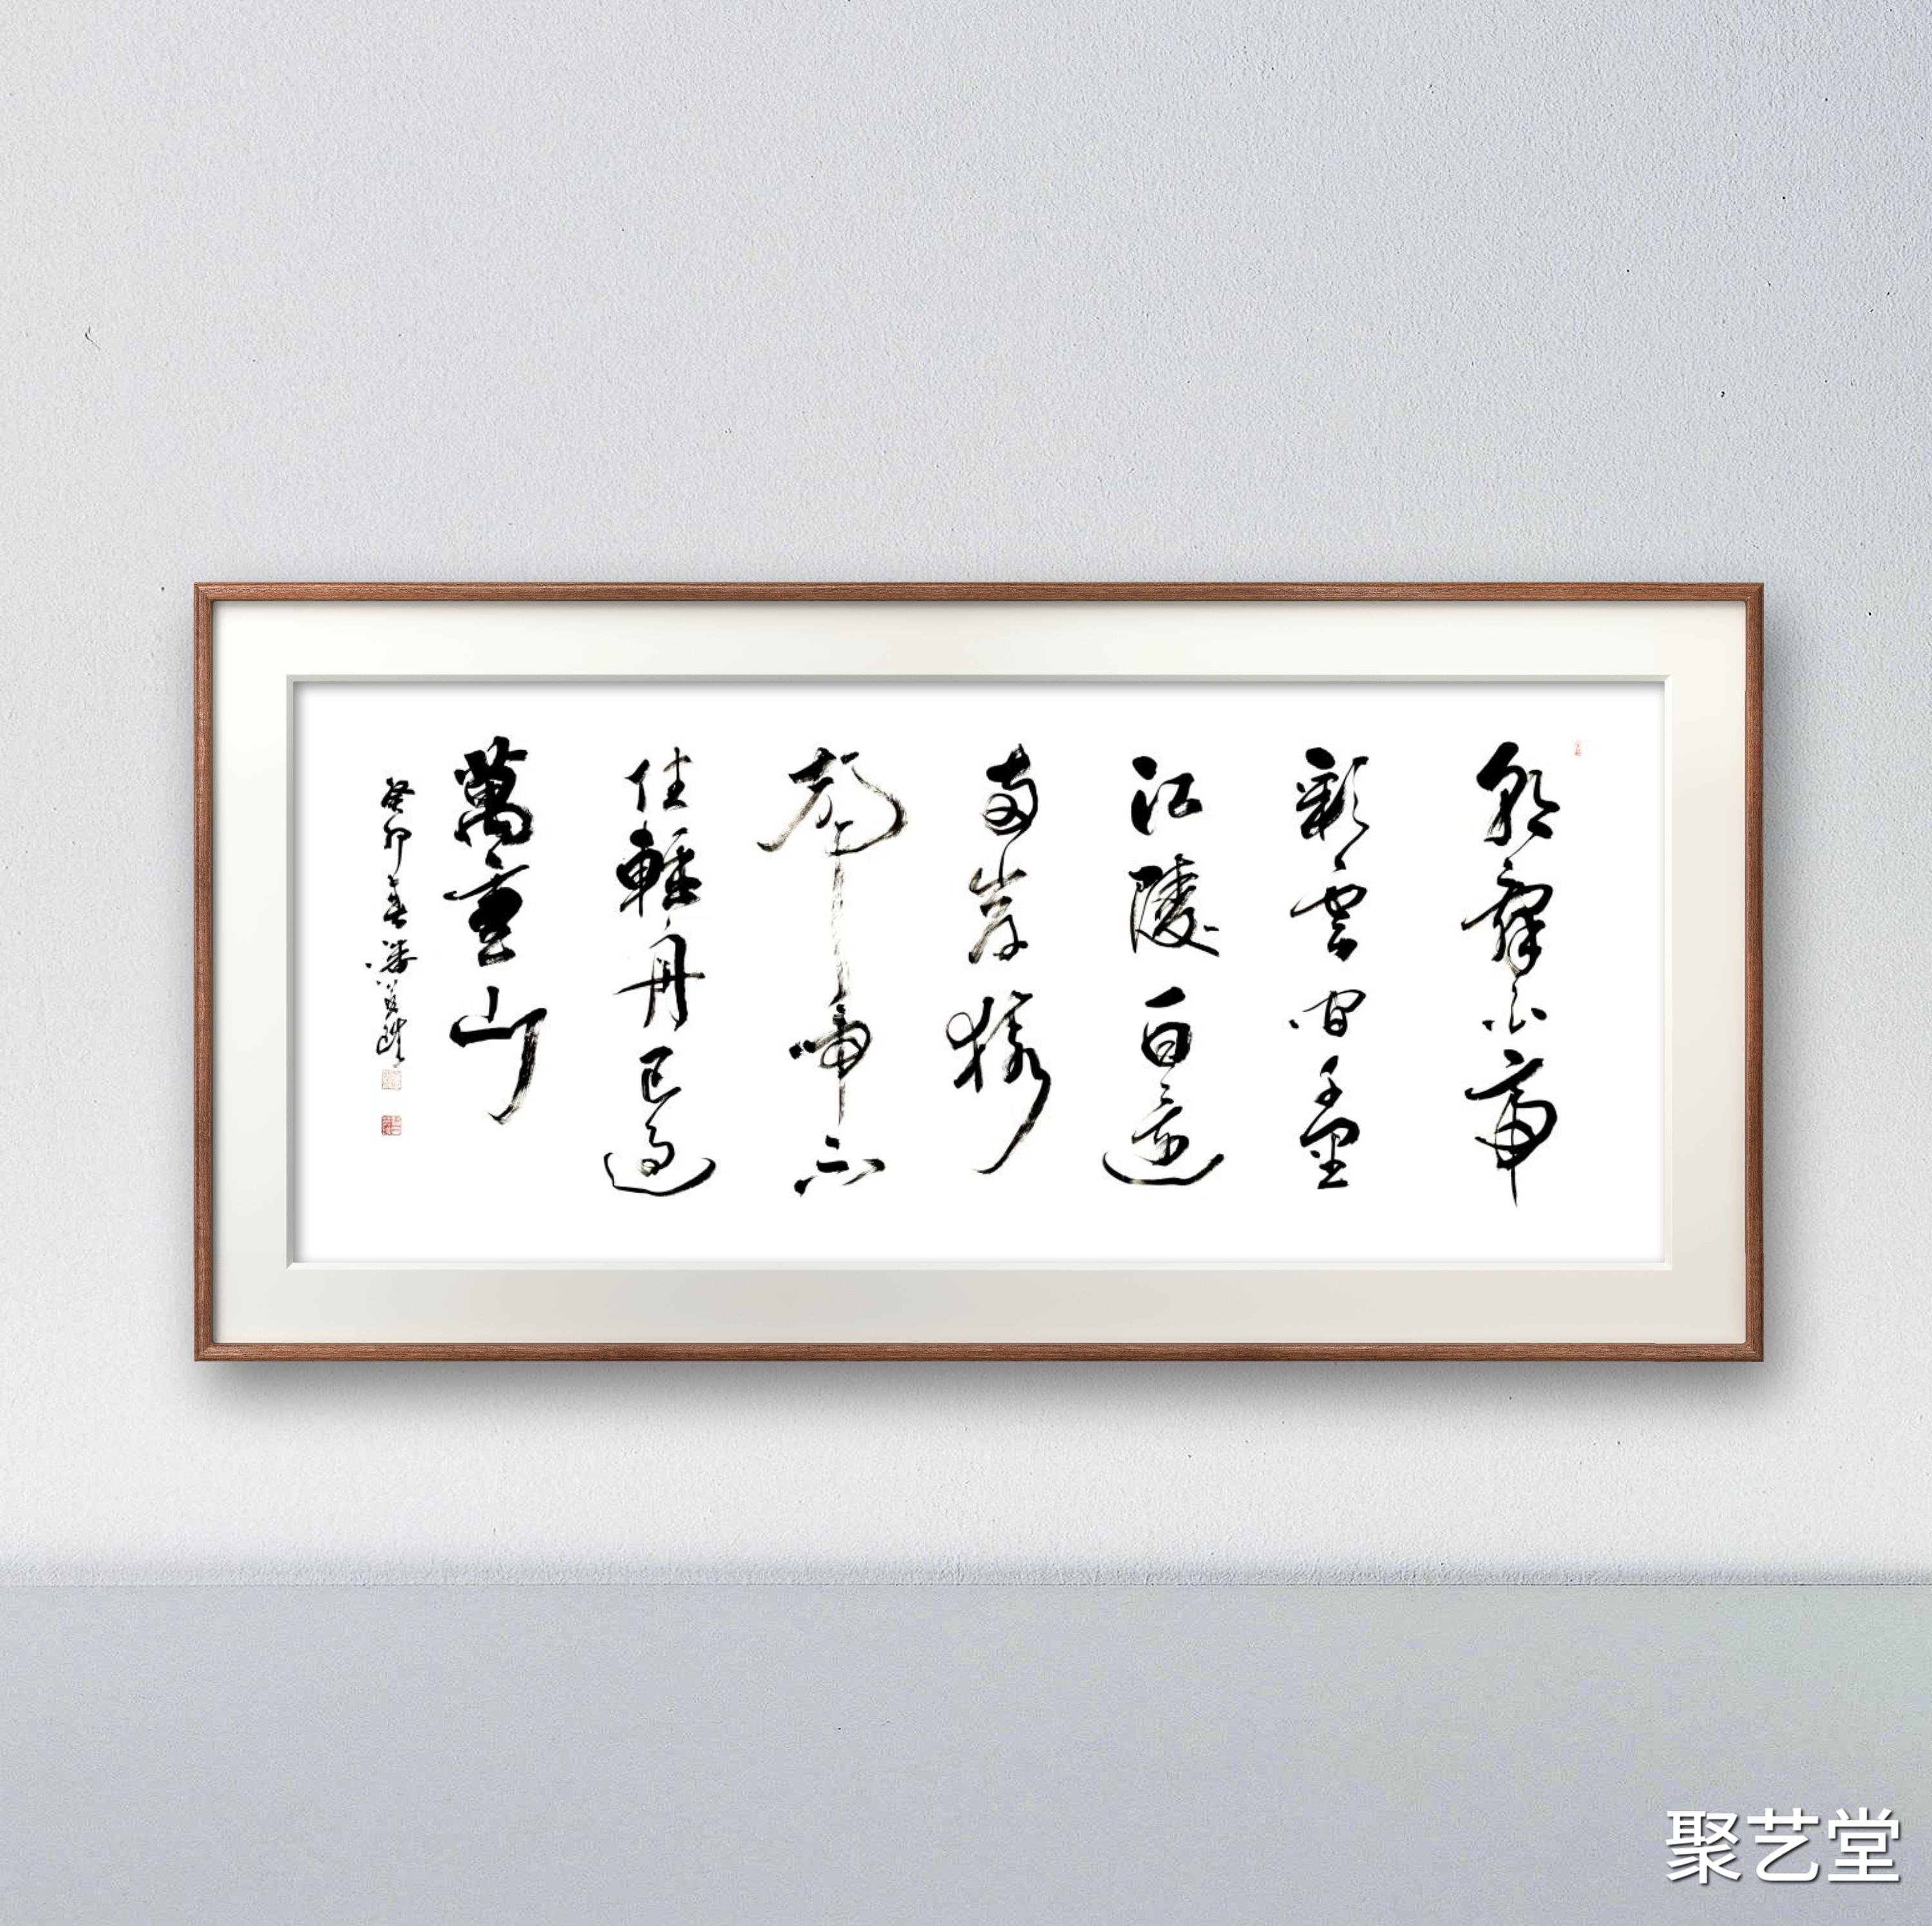 朝辭白帝
彩雲間千里
江陵一日還
兩岸猿
聲啼不
住輕舟已過
萬重山
癸卯春潘
聚艺堂